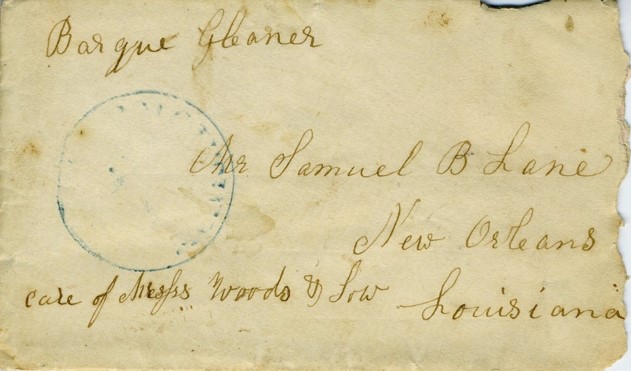 Barque Gleaner
Mr Samuel B Lane
New Orleans
care of Messrs Woods & Low
Louisiana